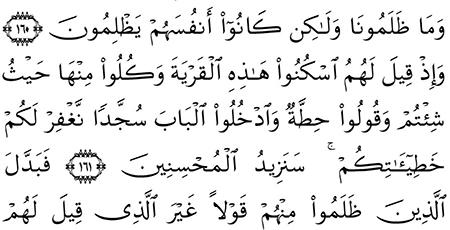 وَمَا ظَلَمُونَا وَلَٰكِن كَانُوٓا۟ أَنفُسَهُمْ يَظْلِمُونَ ١٦٥
وَإِذْ قِيلَ لَهُمُ ٱسْكُنُوا۟ هَٰذِهِ ٱلْقَرْيَةَ وَكُلُوا۟ مِنْهَا حَيْثُ
شِئْتُمْ وَقُولُوا۟ حِطَّةٌ وَٱدْخُلُوا۟ ٱلْبَابَ سُجَّدًا نَّغْفِرْ لَكُمْ
خَطِيٓـَٰٔتِكُمْ ۚ سَنَزِيدُ ٱلْمُحْسِنِينَ ١٦١ فَبَدَّلَ
ٱلَّذِينَ ظَلَمُوا۟ مِنْهُمْ قَوْلًا غَيْرَ ٱلَّذِى قِيلَ لَهُمْ